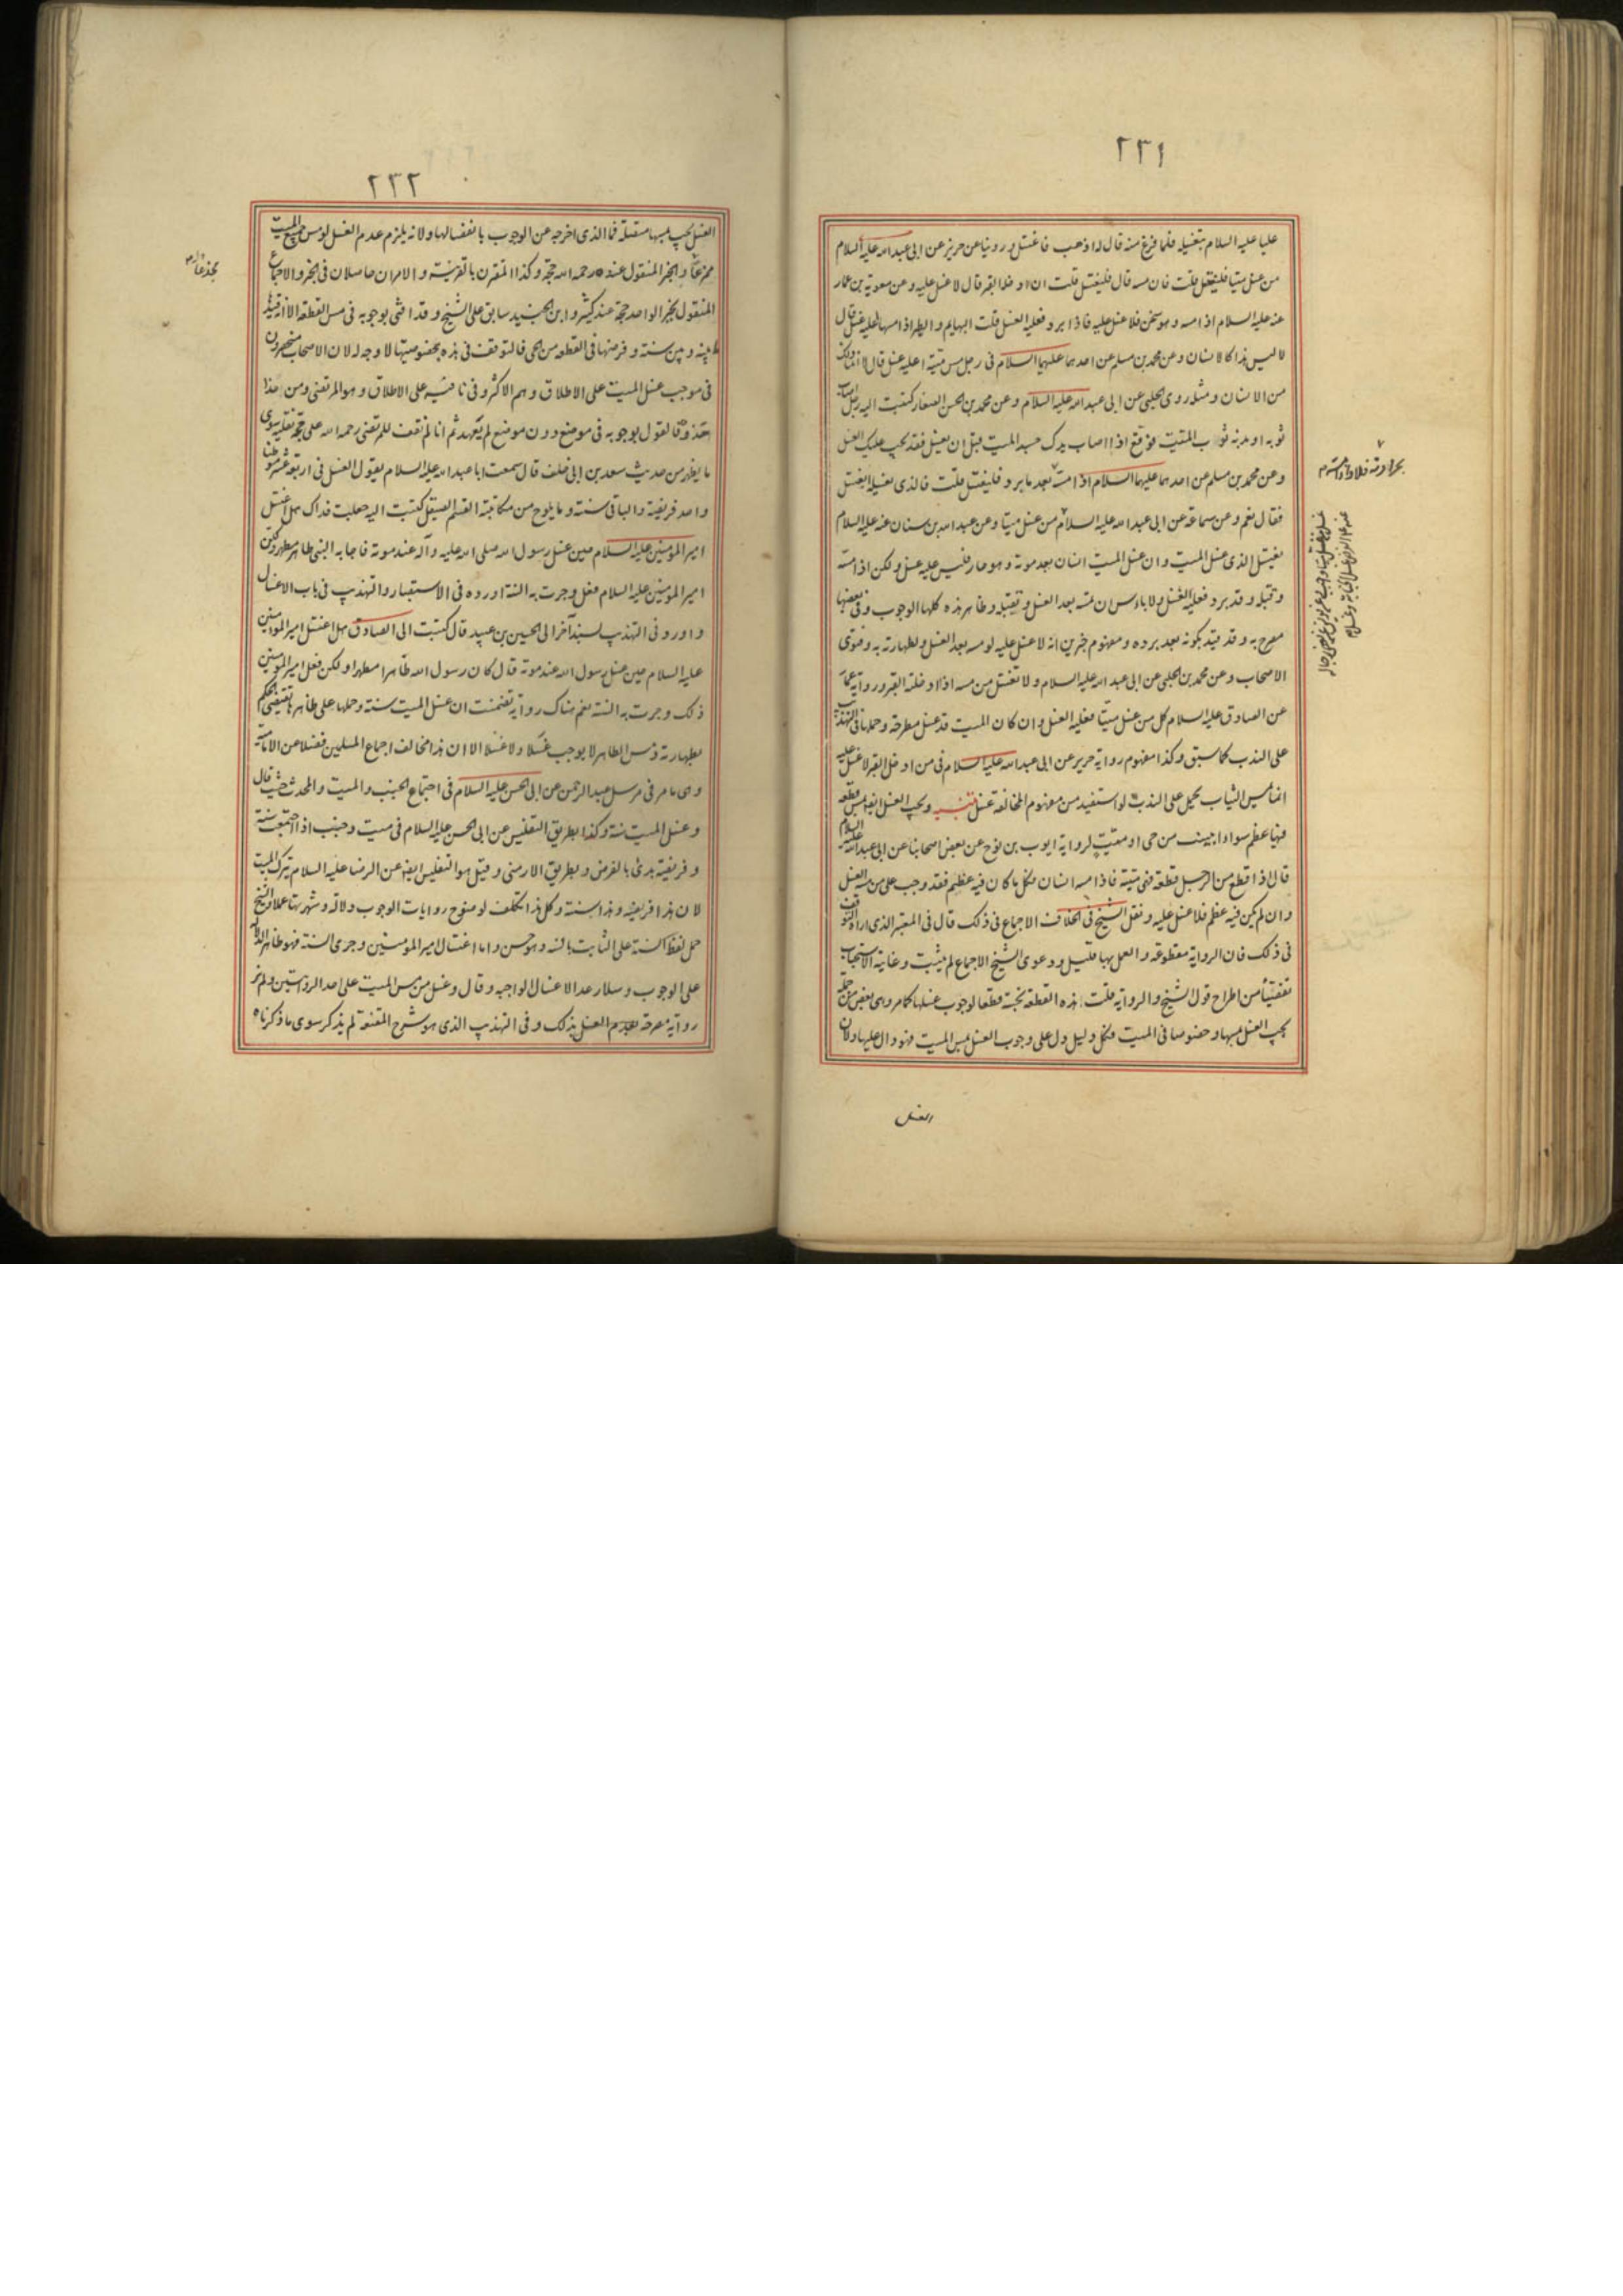 ٢٣١
عليا عليه السلام بتغسيله فلما فرغ منه قال له اذهب فاغتسل وروينا عن حريز عن ابى عبد الله عليه السلام
من غسل ميتا فليغتسل قلت فان مسه قال فليغتسل قلت ان ادخله القبر قال لا غسل عليه وعن معوية بن عمار
عنه عليه السلام اذا مسه وهو سخن فلا غسل عليه فاذا برد فعليه الغسل قلت البهايم والطير اذا مسها عليه غسل قال
لا ليس هذا كالانسان وعن محمد بن مسلم عن احدهما عليهما السلام فى رجل مس ميتة اعليه غسل قال لا انما ذلك
من الانسان ومثله روى الحلبى عن ابى عبد الله عليه السلام وعن محمد بن الحسن الصفار كتبت اليه رجل اصاب
ثوبه او بدنه ثوب الميت فوقع اذا اصاب يدك جسد الميت قبل ان يغسل فقد يجب عليك الغسل
وعن محمد بن مسلم عن احدهما عليهما السلام اذا مسه بعد ما يبرد فليغتسل قلت فالذى يغسله يغتسل
فقال نعم وعن سماعة عن ابى عبد الله عليه السلام من غسل ميتا وعن عبد الله بن سنان عنه عليه السلام
يغتسل الذى غسل الميت وان غسل الميت انسان بعد موته وهو حار فليس عليه غسل ولكن اذا مسه
وقبله وقد برد فعليه الغسل ولا باس ان يمسه بعد الغسل ويقبله وظاهر هذه كلها الوجوب وفى بعضها
مصرح به وقد قيد بكونه بعد برده ومفهوم خبرين انه لا غسل عليه لو مسه بعد الغسل ولطهارته به وفتوى
الاصحاب وعن محمد بن الحلبى عن ابى عبد الله عليه السلام ولا تغتسل من مسه اذا ادخلته القبر ورواية عمار
عن الصادق عليه السلام كل من غسل ميتا فعليه الغسل وان كان الميت قد غسل مطرحة وحملها فى التهذيب
على الندب كما سبق وكذا مفهوم رواية حريز عن ابى عبد الله عليه السلام فى من ادخل القبر لا غسل عليه
انما يمس الثياب يحمل على الندب لو استفيد من مفهوم المخالفة غسل تنبيه ويجب الغسل ايضا بمس قطعة
فيها عظم سواء ابينت من حى او ميت لرواية ايوب بن نوح عن بعض اصحابنا عن ابى عبد الله عليه السلام
قال اذا قطع من الرجل قطعة فهى ميتة فاذا مسه انسان فكل ما كان فيه عظم فقد وجب على من مسه الغسل
وان لم يكن فيه عظم فلا غسل عليه ونقل الشيخ فى الخلاف الاجماع فى ذلك قال فى المعتبر الذى اراه التوقف
فى ذلك فان الرواية مقطوعة والعمل بها قليل ودعوى الشيخ الاجماع لم يثبت وغايته الاستحباب
تفصيا من اطراح قول الشيخ والرواية قلت هذه القطعة نجسة قطعا لوجوب غسلها كما مر وهى بعض من جملة
يجب الغسل بمسها وخصوصا فى الميت فكل دليل دل على وجوب الغسل بمس الميت فهو دال عليها ولان
الغسل
٢٣٢
الغسل يجب بمسها متصلة فما الذى اخرجه عن الوجوب بانفصالها ولانه يلزم عدم الغسل لو مس جميع الميت
ممزعا والخبر المنقول عنده رحمه الله حجة وكذا المقترن بالقرينة والامران حاصلان فى الخبر والاجماع
المنقول بخبر الواحد حجة عند كثير وابن الجنيد سابق على الشيخ وقد افتى بوجوبه فى مس القطعة الا انه قيد بما
بينه وبين سنة وفرضها فى القطعة من الحى فالتوقف فى هذه بخصوصيتها لا وجه له لان الاصحاب منحصرون
فى موجب غسل الميت على الاطلاق وهم الاكثر وفى نافيه على الاطلاق وهو المرتضى ومن اخذ
اخذه فالقول بوجوبه فى موضع دون موضع لم يعهد ثم انا لم نقف للمرتضى رحمه الله على حجة نقلية سوى
ما يظهر من حديث سعد بن ابى خلف قال سمعت ابا عبد الله عليه السلام يقول الغسل فى اربعة عشر موطنا
واحد فريضة والباقى سنة وما يلوح من مكاتبة القسم الصيقل كتبت اليه جعلت فداك هل اغتسل
امير المؤمنين عليه السلام حين غسل رسول الله صلى الله عليه وآله عند موته فاجابه النبى طاهر مطهر ولكن
امير المؤمنين عليه السلام فعل وجرت به السنة اورده فى الاستبصار والتهذيب فى باب الاغسال
واورد فى التهذيب بسند آخر الى الحسين بن عبيد قال كتبت الى الصادق هل اغتسل امير المؤمنين
عليه السلام حين غسل رسول الله عند موته قال كان رسول الله طاهرا مطهرا ولكن فعل امير المؤمنين
ذلك وجرت به السنة نعم هناك رواية تضمنت ان غسل الميت سنة وحملها على ظاهرها يقتضى الحكم
بطهارته ومس الطاهر لا يوجب غسلا ولا غسلا الا ان هذا مخالف اجماع المسلمين فضلا عن الامامية
وهى ما مر فى مرسل عبد الرحمن عن ابى الحسن عليه السلام فى اجتماع الجنب والميت والمحدث حيث قال
وغسل الميت سنة وكذا بطريق التفليسى عن ابى الحسن عليه السلام فى ميت وجنب اذا اجتمعت سنة
وفريضة بدئ بالفرض وبطريق الارمنى وقيل هو التفليسى ايضا عن الرضا عليه السلام يترك الميت
لان هذا فريضة وهذا سنة وكل هذا تكلف لوضوح روايات الوجوب دلالة وشهرتها عملا والشيخ
حمل لفظ السنة على الثابت بالسنة وهو حسن واما اغتسال امير المؤمنين وجرى السنة فهو ظاهر الدلالة
على الوجوب وسلار عد الاغسال الواجبة وقال وغسل من مس الميت على احد الروايتين ولم نر
رواية مصرحة بعدم الغسل بذلك وفى التهذيب الذى هو شرح المقنعة لم يذكر سوى ما ذكرناه